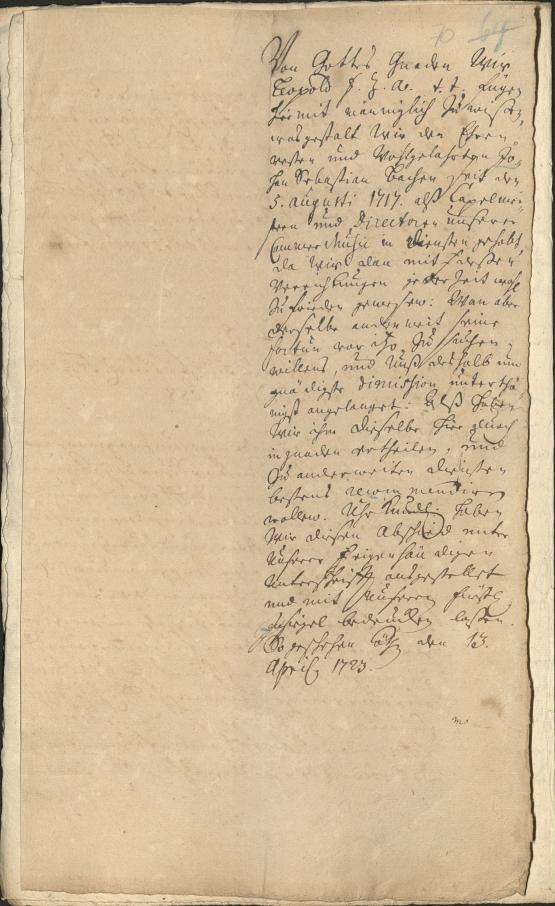 70 64
Von Gottes Gnaden Wir
Leopold F. z. A. t. t. fügen
hiermit männiglich zu wißen,
wasgestalt Wir den Ehren
vesten und Wohlgelahrten Jo-
han Sebastian Bachen seit den
5. Augusti 1717. alß Capelmei-
stern und Directoren unserer
Cammer Music in diensten gehabt
da Wir dan mit deßen
Verrichtungen jeder Zeit wohl
zufrieden gewesen: Wan aber
derselbe anderweit seine
Fortun vor itzo zu suchen,
willens, und Unß deshalb um
gnädigste dimission unterthä-
nigst angelanget: Alß haben
Wir ihm dieselbe hierdurch
in gnaden ertheilen, und
zu anderweiten diensten
bestens recommendiren
wollen. Uhrkundl. haben
Wir diesen Abschied unter
Unserer Eigenhändigen
Unterschrifft ausgestellet
und mit Unserem fürstl.
Insigel bedrucken laßen.
So geschehen Cöth. den 13.
April 1723.